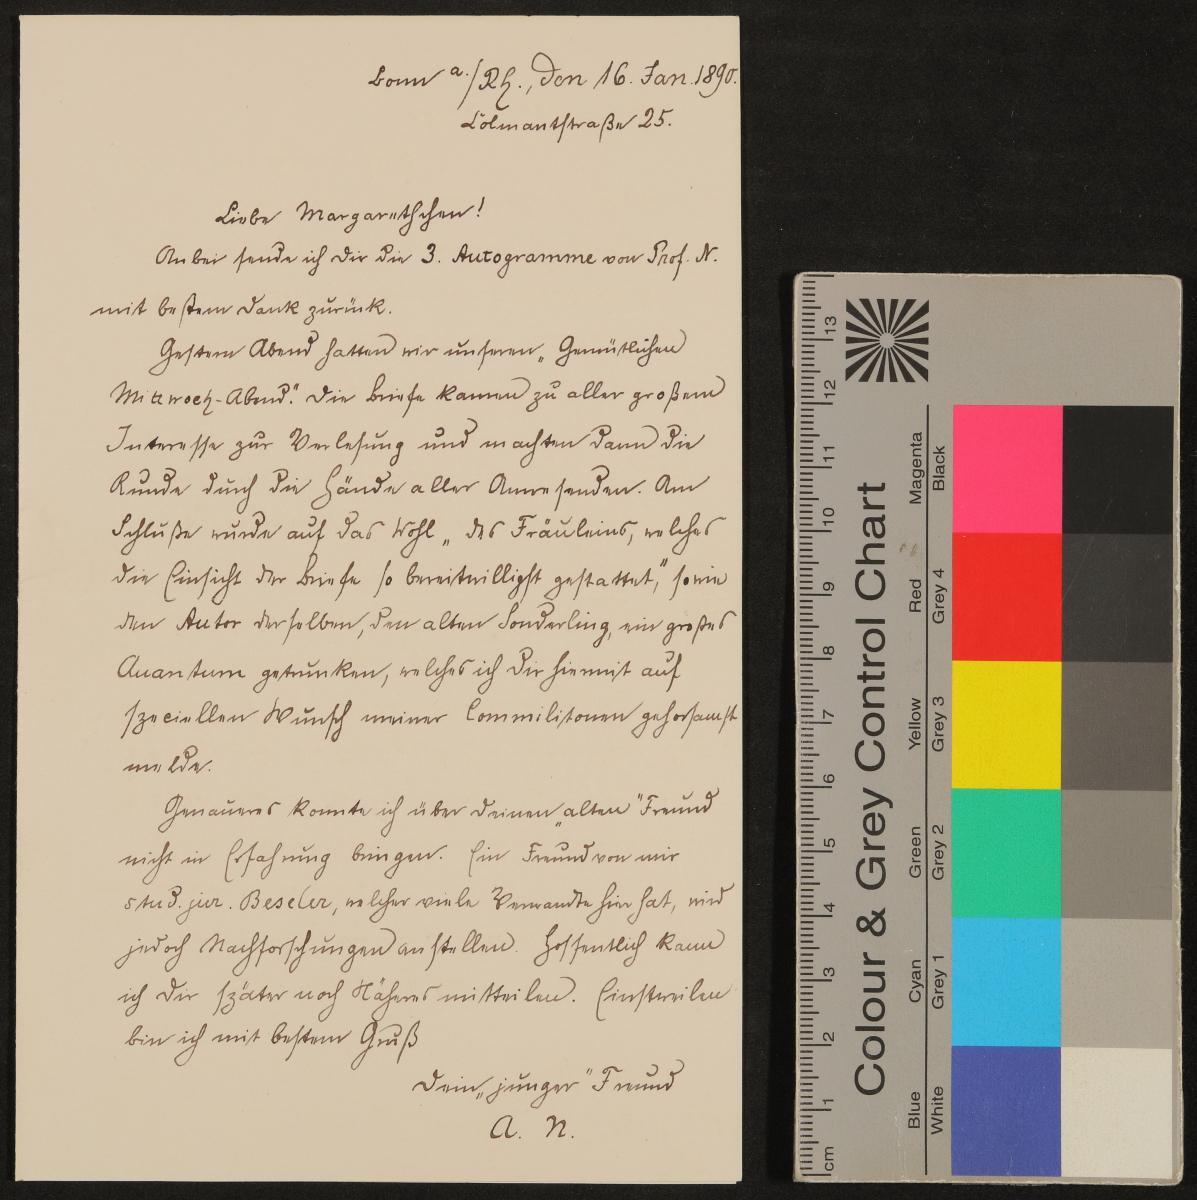 Bonn a./Rh., den 16. Jan. 1890.
Colmantstraße 25.
Liebe Margarethchen!
Anbei sende ich Dir die 3. Autogramme von Prof. N.
mit bestem Dank zurück.
Gestern Abend hatten wir unseren „Gemütlichen
Mittwoch-Abend". Die Briefe kamen zu aller großem
Interesse zur Verlesung und machten dann die
Runde durch die Hände aller Anwesenden. Am
Schluße wurde auf das Wohl „des Fräuleins, welches
die Einsicht der Briefe so bereitwilligst gestattet," sowie
den Autor derselben, den alten Sonderling, ein großes
Quantum getrunken, welches ich Dir hiermit auf
speciellen Wunsch meiner Commilitonen gehorsamst
melde.
Genaueres konnte ich über Deinen „alten" Freund
nicht in Erfahrung bringen. Ein Freund von mir
stud. jur. Beseler, welcher viele Verwandte hier hat, wird
jedoch Nachforschungen anstellen. Hoffentlich kann
ich Dir später noch Näheres mitteilen. Einstweilen
bin ich mit bestem Gruß
Dein „junger" Freund
A. N.
Colour & Grey Control Chart
Blue Cyan Green Yellow Red Magenta
White Grey 1 Grey 2 Grey 3 Grey 4 Black
cm 1 2 3 4 5 6 7 8 9 10 11 12 13